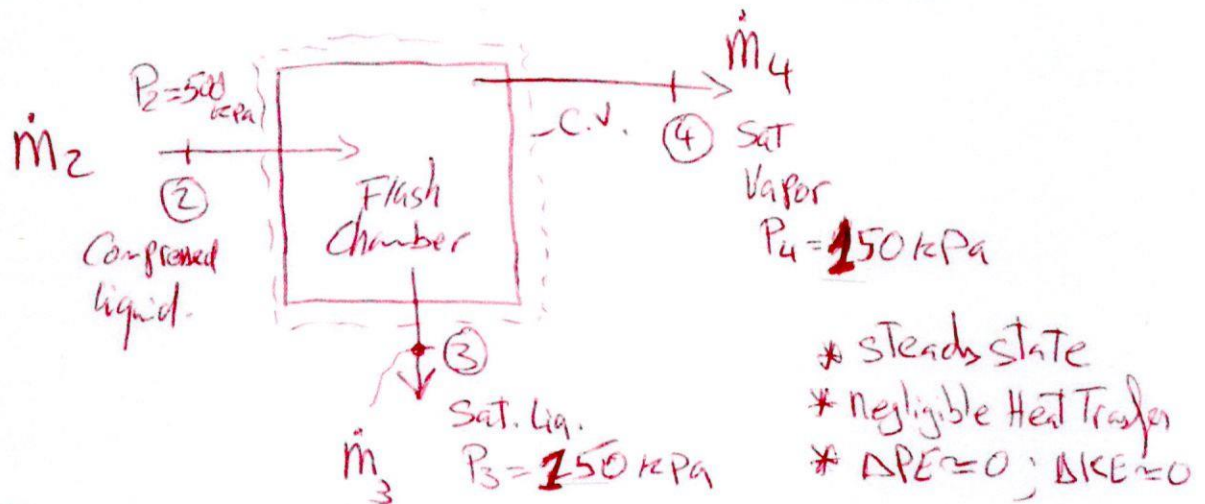 P₂=500 kPa
ṁ₂
②
Compressed
liquid.
Flash
Chamber
C.V.
ṁ₄
④ Sat
Vapor
P₄=150 kPa
③
Sat. Liq.
ṁ₃
P₃=150 kPa
* Steady state
* Negligible Heat Transfer
* ΔPE≈0 ; ΔKE≈0